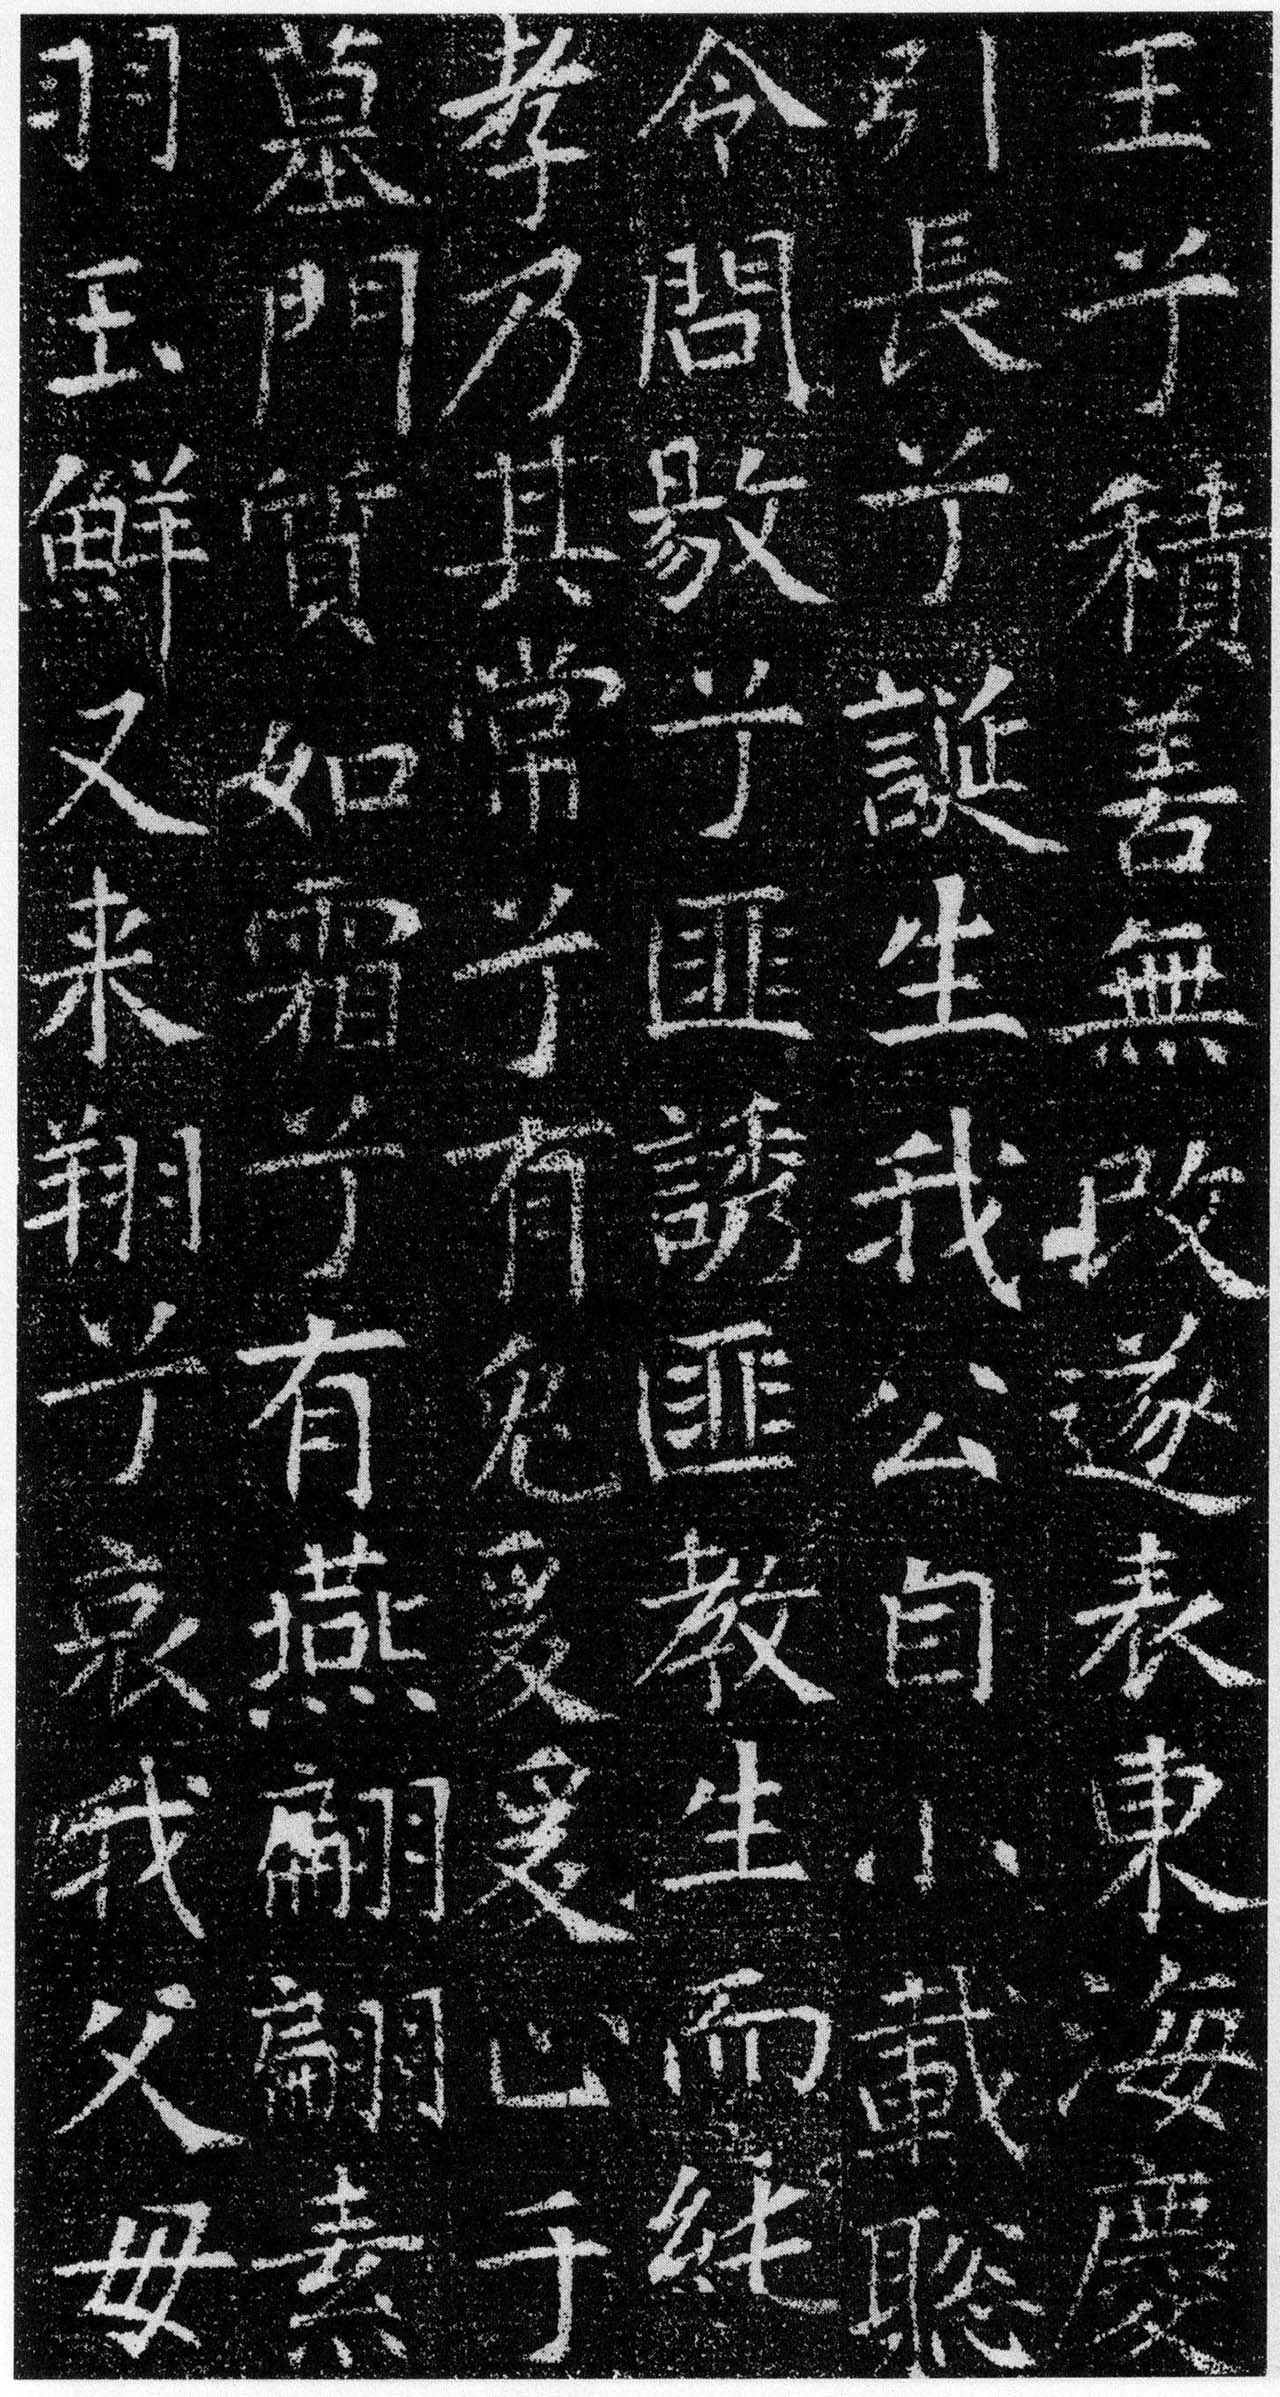 王兮積善無改遂表東海慶
引長兮誕生我公自小載聡
令問敭兮匪誘匪教生而純
孝乃其常兮有兔爰爰止于
墓門質如霜兮有燕翩翩素
羽玉鮮又来翔兮哀我父母